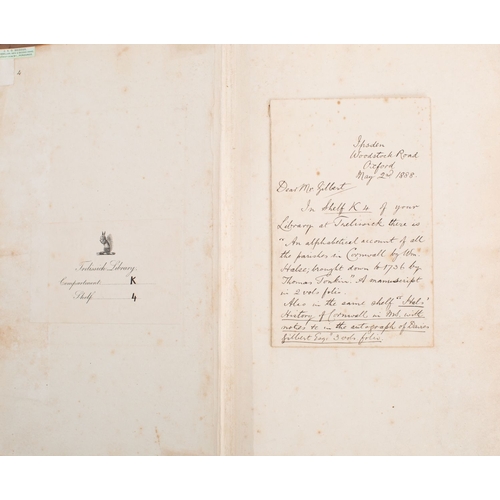 4
Trelissick Library.
Compartment K
Shelf 4
Ipsden
Woodstock Road
Oxford
May 2nd 1888.
Dear Mr Gilbert,
In Shelf K 4 of your
Library at Trelissick there is
"An alphabetical account of all
the parishes in Cornwall by Wm
Hales, brought down to 1736 by
Thomas Tonkin" A manuscript
in 2 vols folio.
Also in the same shelf "Hals'
History of Cornwall in MS. with
notes &c in the autograph of Davies
Gilbert Esqr" 3 vols folio.